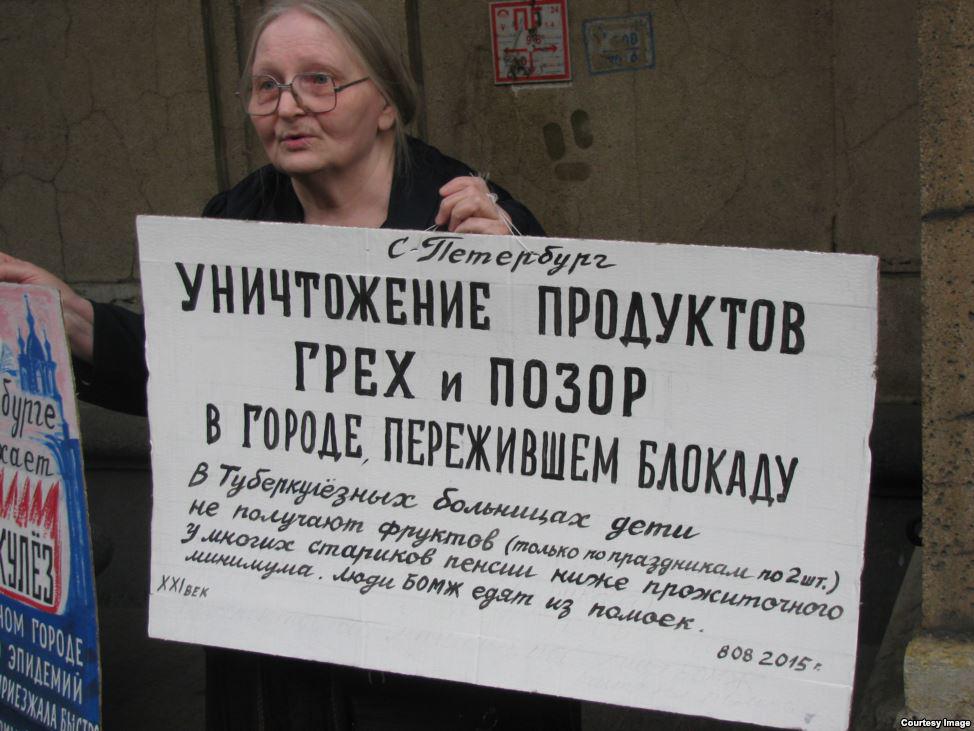 С-Петербург
УНИЧТОЖЕНИЕ ПРОДУКТОВ
ГРЕХ и ПОЗОР
В ГОРОДЕ, ПЕРЕЖИВШЕМ БЛОКАДУ
В Туберкулёзных больницах дети
не получают фруктов (только по праздникам по 2 шт.)
У многих стариков пенсии ниже прожиточного
минимума. Люди БОМЖ едят из помоек.
XXI ВЕК
8 08 2015 г.
бурге
КУЛЁЗ
НОМ ГОРОДЕ
ЭПИДЕМИЙ
ПРИЕЗЖАЛА БЫСТРО
Courtesy Image